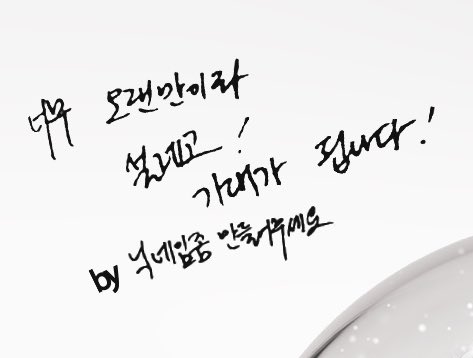 너무 오랜만이라
설레고!
가대가 됩니다!
by 닉네임좀 만들어주세요